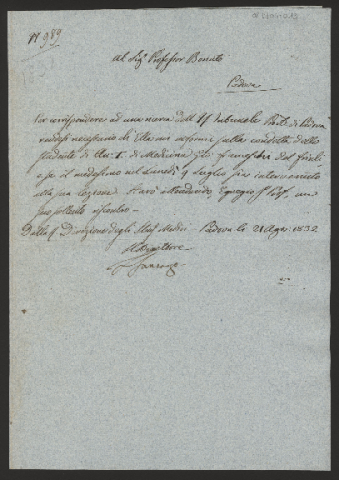 N 989
Al Sig.r Professor Bonato
Padova
Per corrispondere ad una ricerca dell' I. R. Tribunale Prov. di Padova
rendesi necessario che Ella mi informi sulla condotta dello
studente di An. I. di Medicina
e se il medesimo nel Lunedì 9 Luglio sia intervenuto
alla sua lezione. Starò attendendo Egregio Sig. Prof. un
suo sollecito riscontro.
Dalla Direzione degli Studj Medici Padova li 21 Ago. 1832
Il Direttore